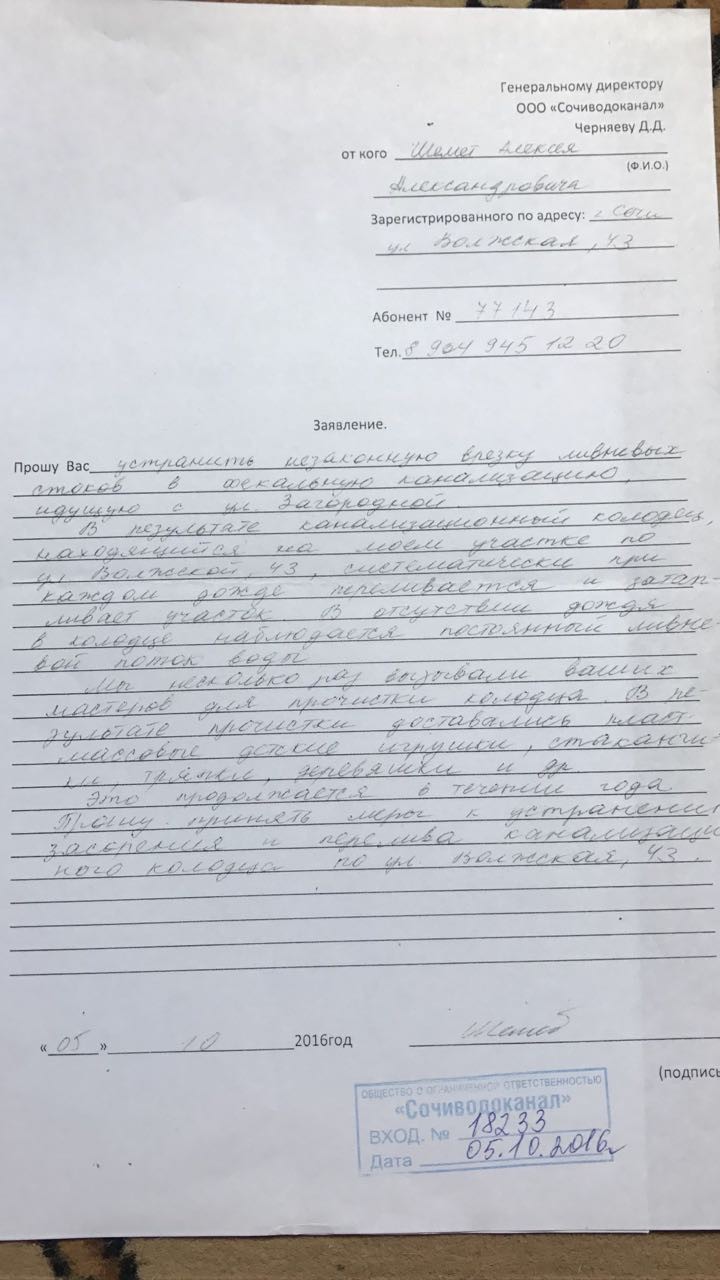 Генеральному директору
ООО «Сочиводоканал»
Черняеву Д.Д.
от кого Шемет Алексея
(Ф.И.О.)
Александровича
Зарегистрированного по адресу: г Сочи
ул Волжская, 43
Абонент № 77143
Тел. 8 904 945 12 20
Заявление.
Прошу Вас устранить незаконную врезку ливневых
стоков в фекальную канализацию,
идущую с ул. Загородной.
В результате канализационный колодец,
находящийся на моем участке по
ул Волжской, 43, систематически при
каждом дожде переливается и затап-
ливает участок. В отсутствии дождя
в колодце наблюдается постоянный ливне-
вой поток воды
Мы несколько раз вызывали ваших
мастеров для прочистки колодца. В ре-
зультате прочистки доставались пласт-
массовые детские игрушки, стаканчи-
ки, тряпки, деревяшки и др.
Это продолжается в течении года.
Прошу принять меры к устранени
засорения и перелива канализаци
ного колодца по ул. Волжская, 43.
«05» 10 2016год
Шемет
(подпись
ОБЩЕСТВО С ОГРАНИЧЕННОЙ ОТВЕТСТВЕННОСТЬЮ
«Сочиводоканал»
ВХОД. № 18233
Дата 05.10.2016г